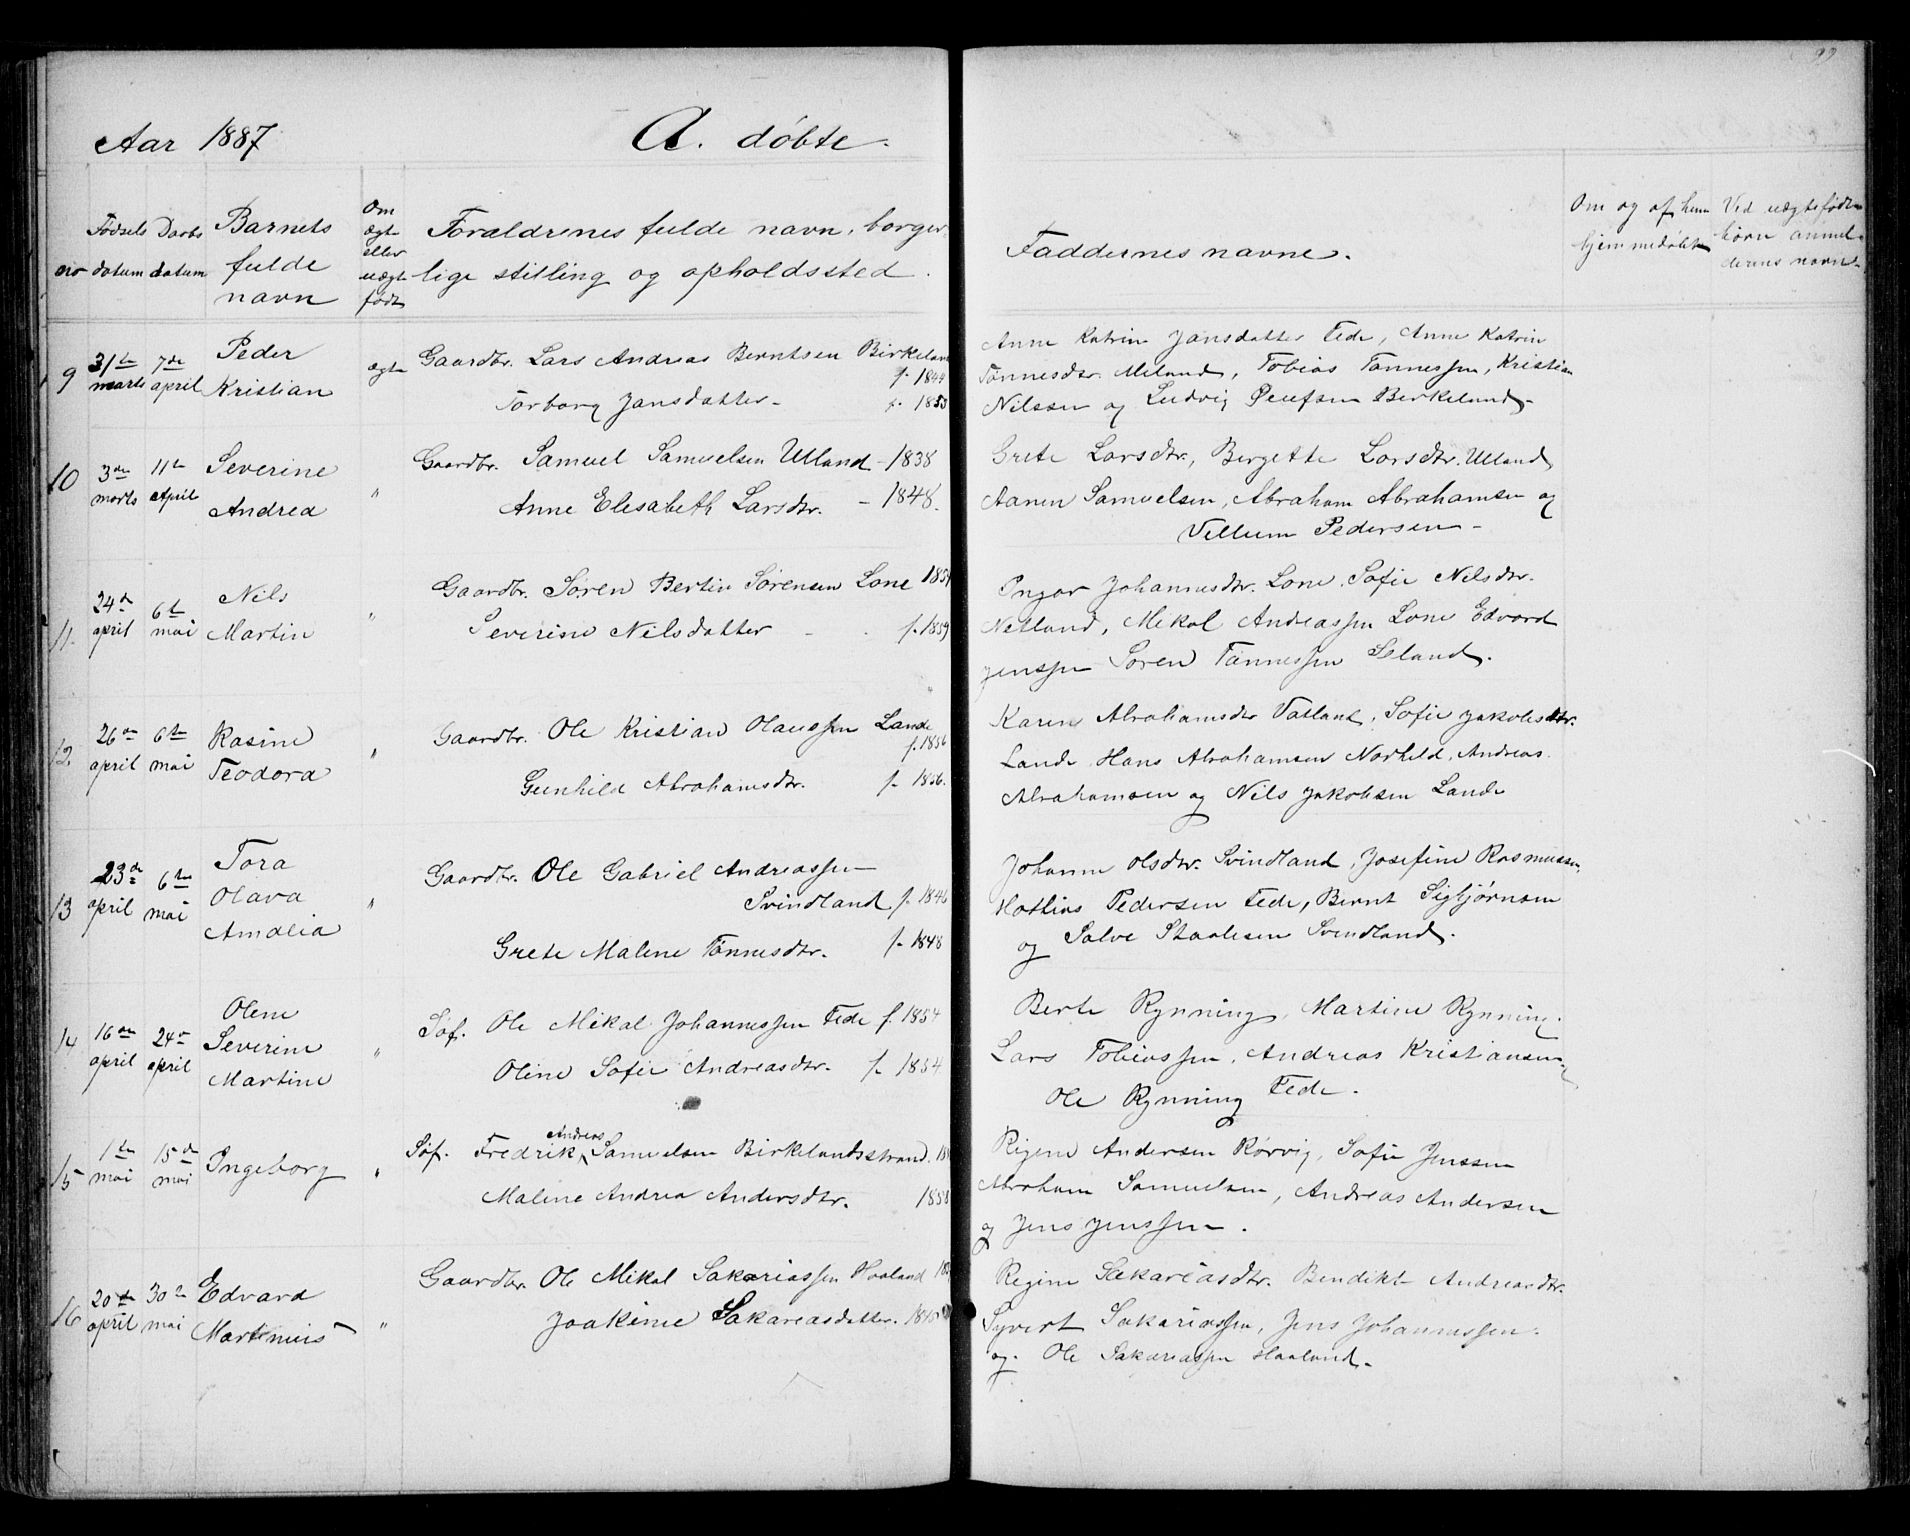 99
Aar 1887 A. døbte.
nr Fødsels datum Daabs datum Barnets fulde navn Om ægte eller uægte født Forældrenes fulde navn, borger-
lige stilling og opholdssted.
Faddernes navne.
Om og af hvem hjemmedøbt
Ved uægtefødte børn anmelderens navn
9 31te marts 7de april Peder Kristian ægte Gaardbr. Lars Andreas Berntsen Birkeland f. 1844
Torborg Jansdatter - f. 1853
Anne Katrin Jansdatter Fede, Anne Katrin
Tønnesdtr. Meland, Tobias Tønnessen, Kristian
Nilssen og Ludvig Birkeland.
10 3die marts 11te april Severine Andrea " Gaardbr. Samuel Samuelsen Ulland - 1838
Anne Elisabeth Larsdtr. - 1848.
Grete Larsdtr., Bergette Larsdtr. Ulland
Aanen Samuelsen, Abraham Abrahamsen og
Villum Pedersen -
11. 24de april 6te mai Nils Martin " Gaardbr. Søren Bertin Sørensen Lone
Severine Nilsdatter - f. 1859
Ingor Johannesdtr. Lone, Sofie Nilsdtr.
Netland, Mikal Andreassen Lone Edvard
Jenssen Søren Tønnessen
12. 26de april 6te mai Rasine Teodora " Gaardbr. Ole Kristian Olaussen Lande f. 1856
Gunhild Abrahamsdtr. f. 1856.
Karen Abrahamsdtr Vatland, Sofie Jakobsdtr.
Lande Hans Abrahamsen Andreas
Abrahamsen og Nils Jakobsen Lande
13 23de april 6te mai Tora Olava Amalia " Gaardbr. Ole Gabriel Andreassen
Svindland f. 1846
Grete Malene Tønnesdtr. f. 1848
Johanne Olsdtr. Svindland, Josefine Rasmussen,
Mathias Pedersen Fede, Bernt Sigbjørnsen
og Salve Staalesen Svindland.
14 16de april 24de april Oline Severine Martine " Søf. Ole Mikal Johannessen Fede f. 1854
Oline Sofie Andreasdtr. f. 1854
Berte Rynning, Martine Rynning.
Lars Tobiassen, Andreas Kristiansen
Ole Rynning Fede.
15 1te mai 15de mai Ingeborg " Søf. Fredrik Andreas Samuelsen Birkelandsstrand.
Maline Andrea Andersdtr. 1858
Regine Andersen Rørvig, Sofie Jenssen
Abraham Samuelsen, Andreas Andersen
og Jens Jenssen.
16 20de april 30te mai Edvard Martinius " Gaardbr. Ole Mikal Sakariassen Haaland
Joakime Sakariasdatter. 1845
Regine Sakariasdtr. Bendikte Andreasdtr.
Syvert Sakariassen, Jens Johannessen.
og Ole Sakariassen Haaland.